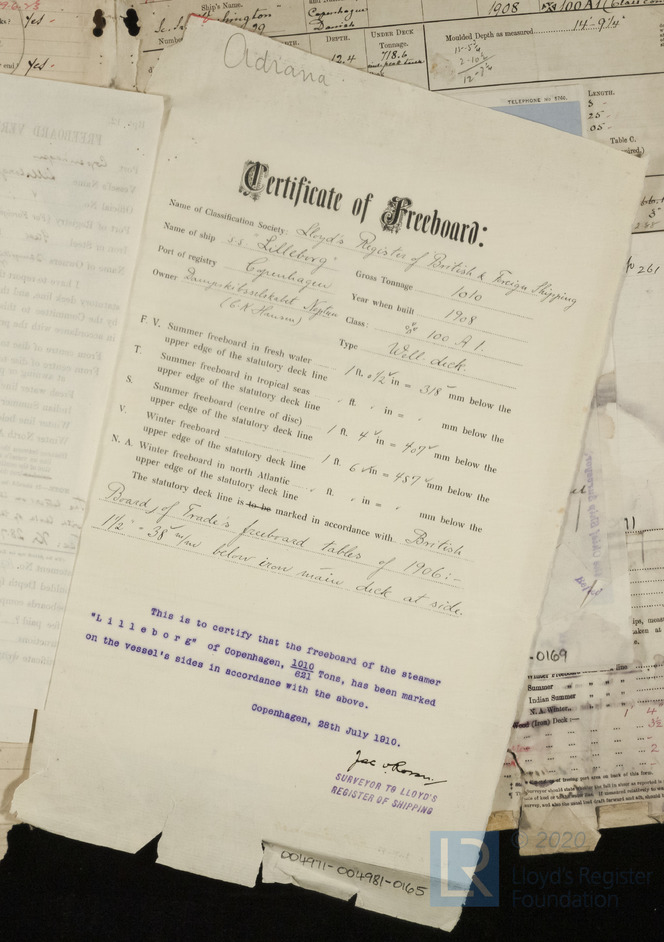 Adriana
Certificate of Freeboard:
Name of Classification Society: Lloyd's Register of British & Foreign Shipping
Name of ship s.s. "Lilleborg"
Port of registry Copenhagen
Owner Dampskibsselskabet Neptun
(C.K. Hansen)
Gross Tonnage 1010
Year when built 1908
Class: 100 A 1.
Type Well deck.
F. V. Summer freeboard in fresh water
upper edge of the statutory deck line 1 ft. 0 1/2 in = 318 mm below the
T. Summer freeboard in tropical seas
upper edge of the statutory deck line " ft. " in = " mm below the
S. Summer freeboard (centre of disc)
upper edge of the statutory deck line 1 ft. 4 in = 407 mm below the
V. Winter freeboard
upper edge of the statutory deck line 1 ft. 6 in = 457 mm below the
N. A. Winter freeboard in north Atlantic
upper edge of the statutory deck line " ft. " in = " mm below the
The statutory deck line is to be marked in accordance with British
Board of Trade's freeboard tables of 1906:-
1 1/2" = 38 m/m below iron main deck at side.
This is to certify that the freeboard of the steamer
"Lilleborg" of Copenhagen, 1010/621 Tons, has been marked
on the vessel's sides in accordance with the above.
Copenhagen, 28th July 1910.
SURVEYOR TO LLOYD'S
REGISTER OF SHIPPING
004971-004981-0165
Ship's Name.
Copenhagen
Danish
1908
Number
DEPTH.
12.4
UNDER DECK
Tonnage.
718.6
Moulded Depth as measured
14'-9 1/4"
Yes -
Yes -
TELEPHONE No 5760.
LENGTH.
Table C.
261
-0169
Summer
Indian Summer
N. A. Winter
LR
© 2020
Lloyd's Register
Foundation